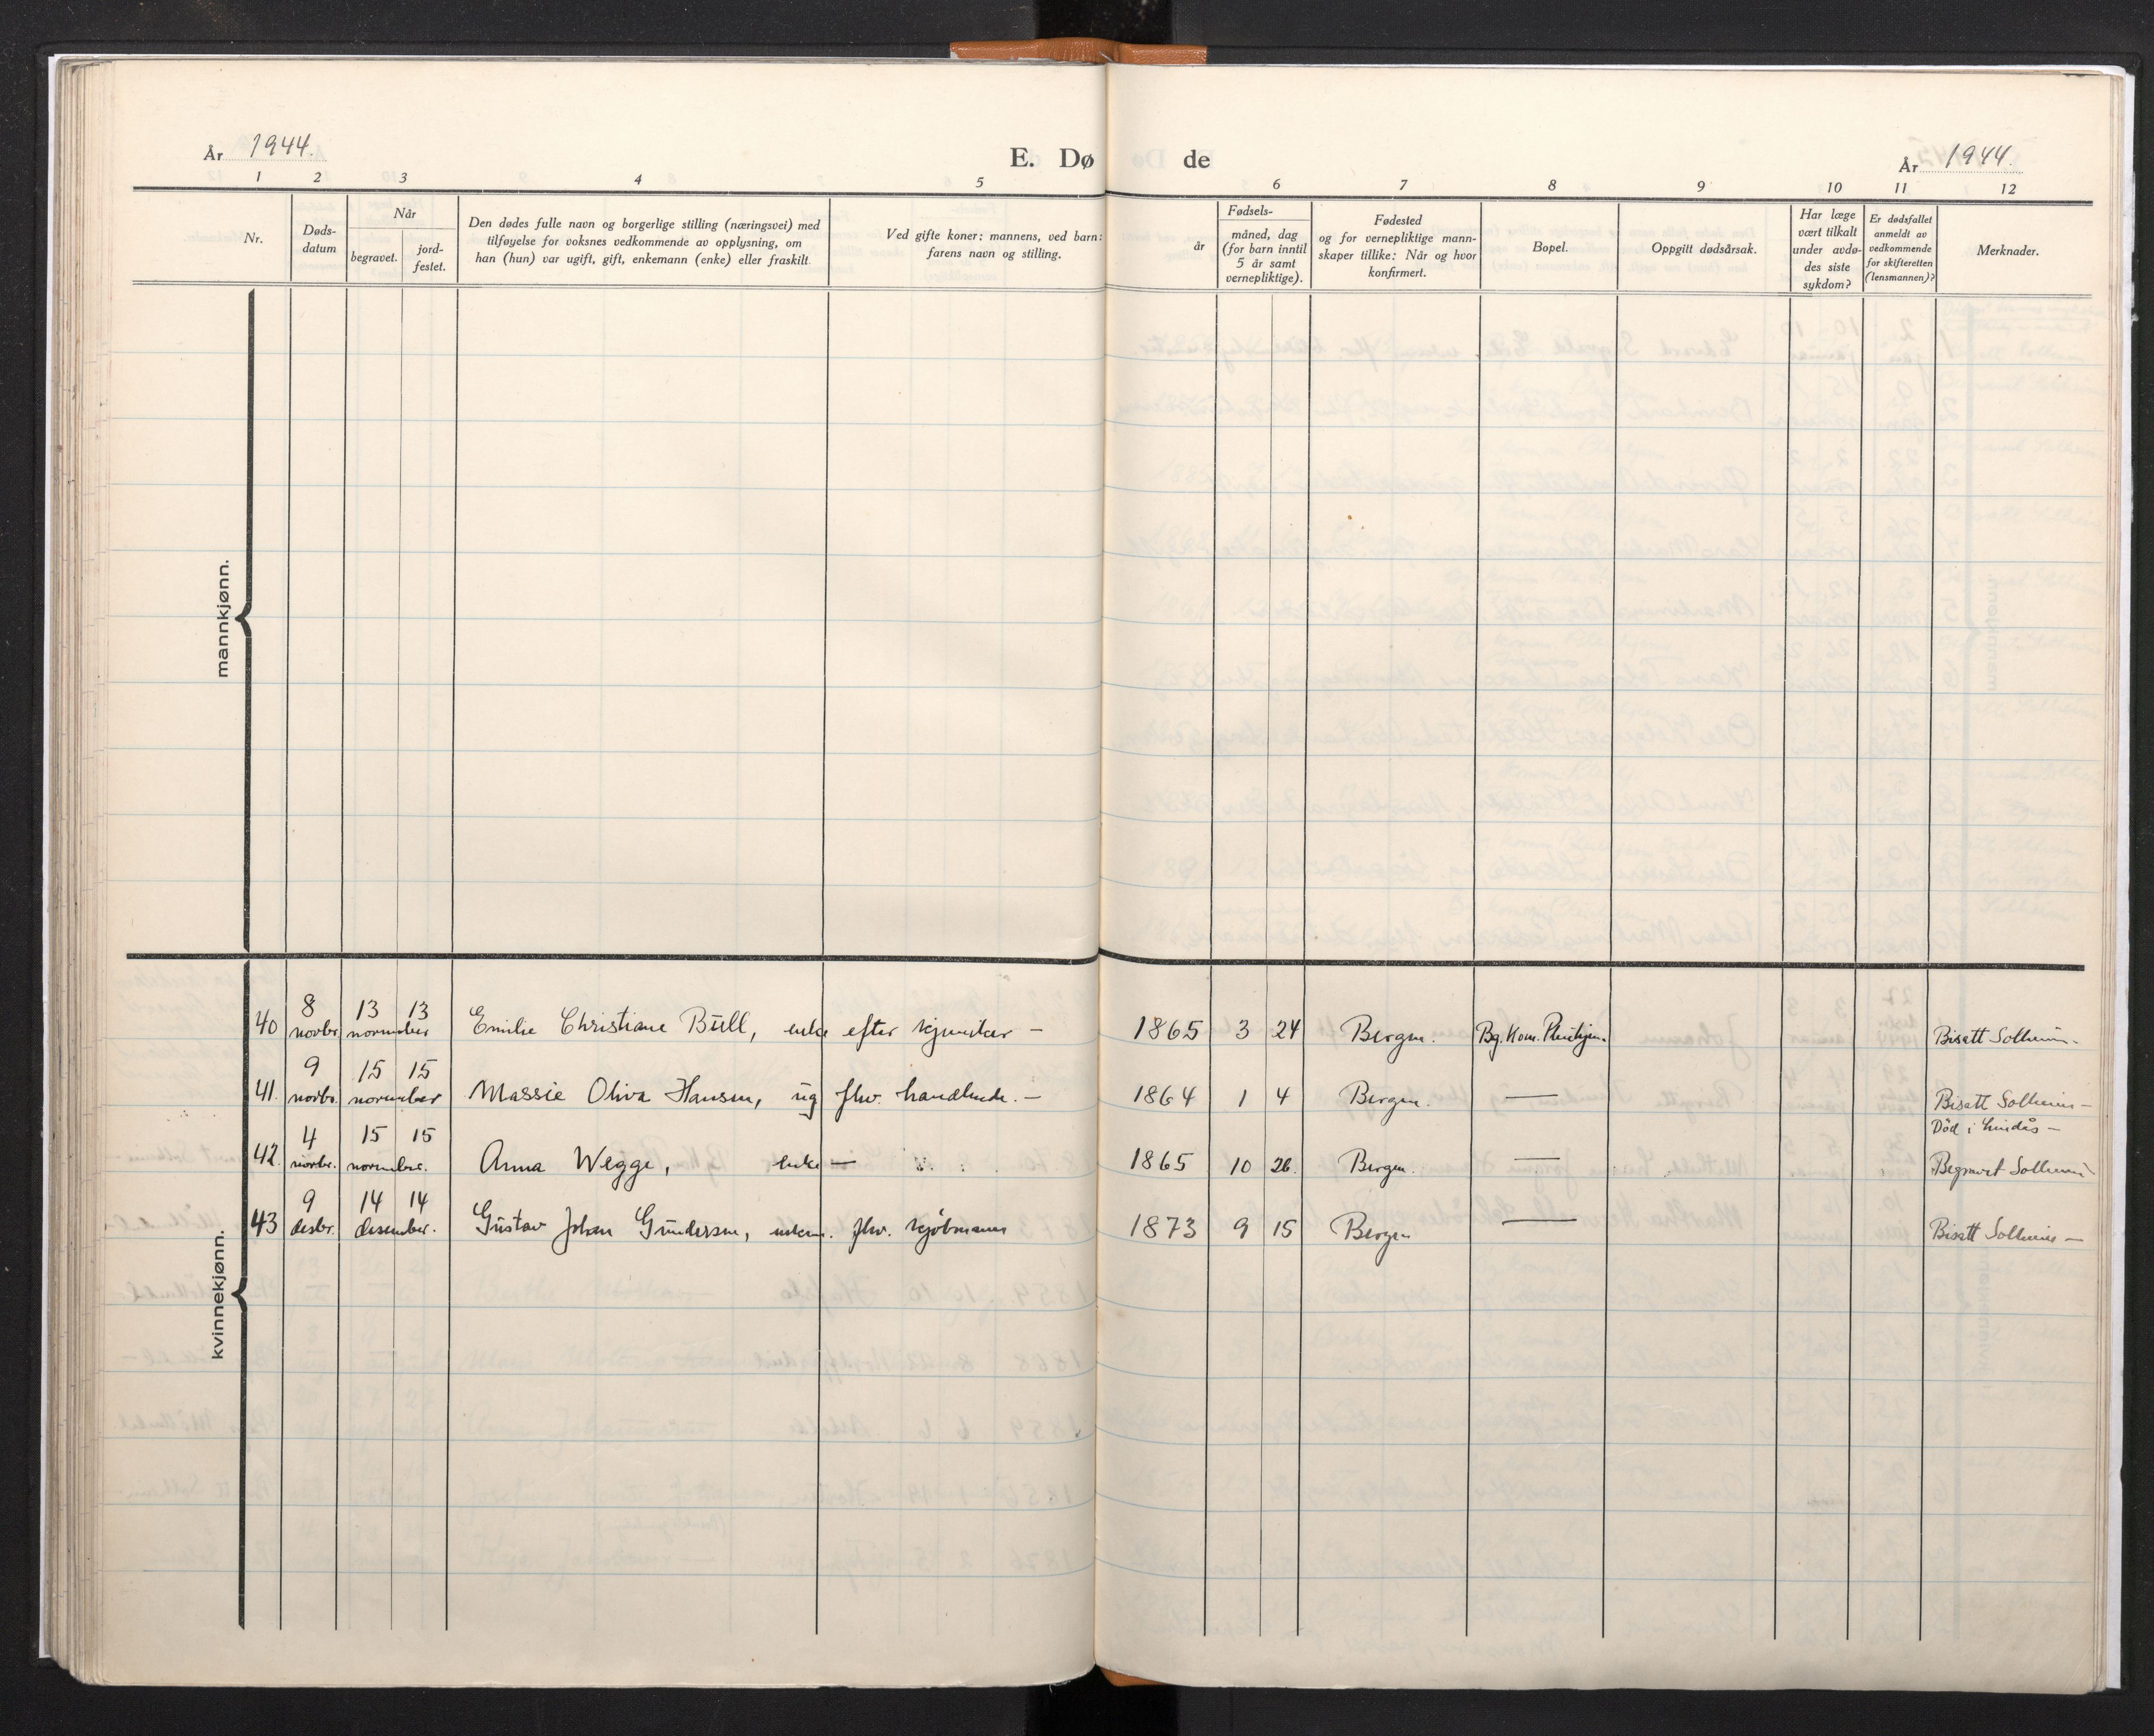 År 1944.
E. Dø de
År 1944.
1 2 3 4 5 6 7 8 9 10 11 12
Nr.
Døds-
datum
Når
begravet.
jord-
festet.
Den dødes fulle navn og borgerlige stilling (næringsvei) med
tilføyelse for voksnes vedkommende av opplysning, om
han (hun) var ugift, gift, enkemann (enke) eller fraskilt.
Ved gifte koner: mannens, ved barn:
farens navn og stilling.
år
Fødsels-
måned, dag
(for barn inntil
5 år samt
vernepliktige).
Fødested
og for vernepliktige mann-
skaper tillike: Når og hvor
konfirmert.
Bopel.
Oppgitt dødsårsak.
Har læge
vært tilkalt
under avdø-
des siste
sykdom?
Er dødsfallet
anmeldt av
vedkommende
for skifteretten
(lensmannen)?
Merknader.
mannkjønn.
kvinnekjønn.
8 13 13
40 novbr. november Emilie Christiane Büll, enke efter – 1865 3 24 Bergen. Bg. Kom. Pleiehjem. Bisatt Solheim –
9 15 15
41. novbr. november Massie Oliva Hansen, ug fhv. handlende. – 1864 1 4 Bergen. — Bisatt Solheim –
4 15 15 Död i Lindås –
42. novbr. november. Anna Wegge, enke — 1865 10 26. Bergen. — Begravet Solheim
9 14 14
43 desbr. desember. Gustav Johan Gundersen, enkem. fhv. kjøbmann 1873 9 15 Bergen — Bisatt Solheim –